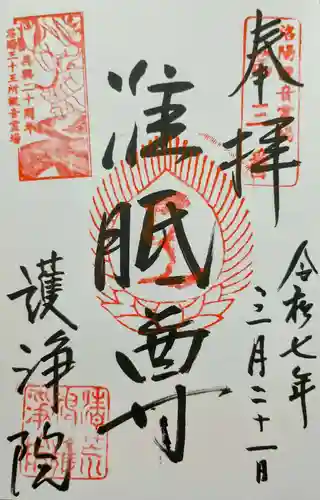 奉拝
令和七年
三月二十一日
准胝尊
護浄院
洛陽三十三所観音霊場
再興二十周年